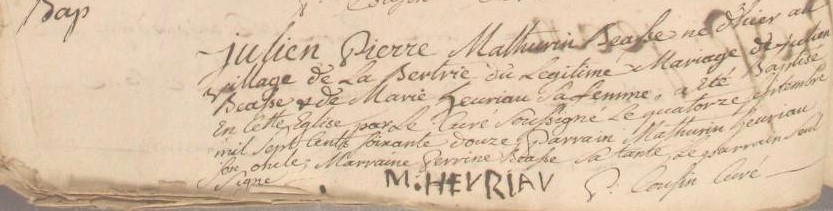 Bap
julien Pierre Mathurin Beasse né d'hier au
village de La Bertrie du Legitime Mariage de julien
Beasse & de Marie heuriau Sa femme, a eté Baptisé
En cette Eglise par Le Curé Soussigné Le quatorze septembre
mil sept cents soixante douze, Parrain Mathurin heuriau
son oncle, Marraine Perrine Beasse sa tante, Le parrain seul
Signe
M. HEVRIAV
P. Cousin Curé